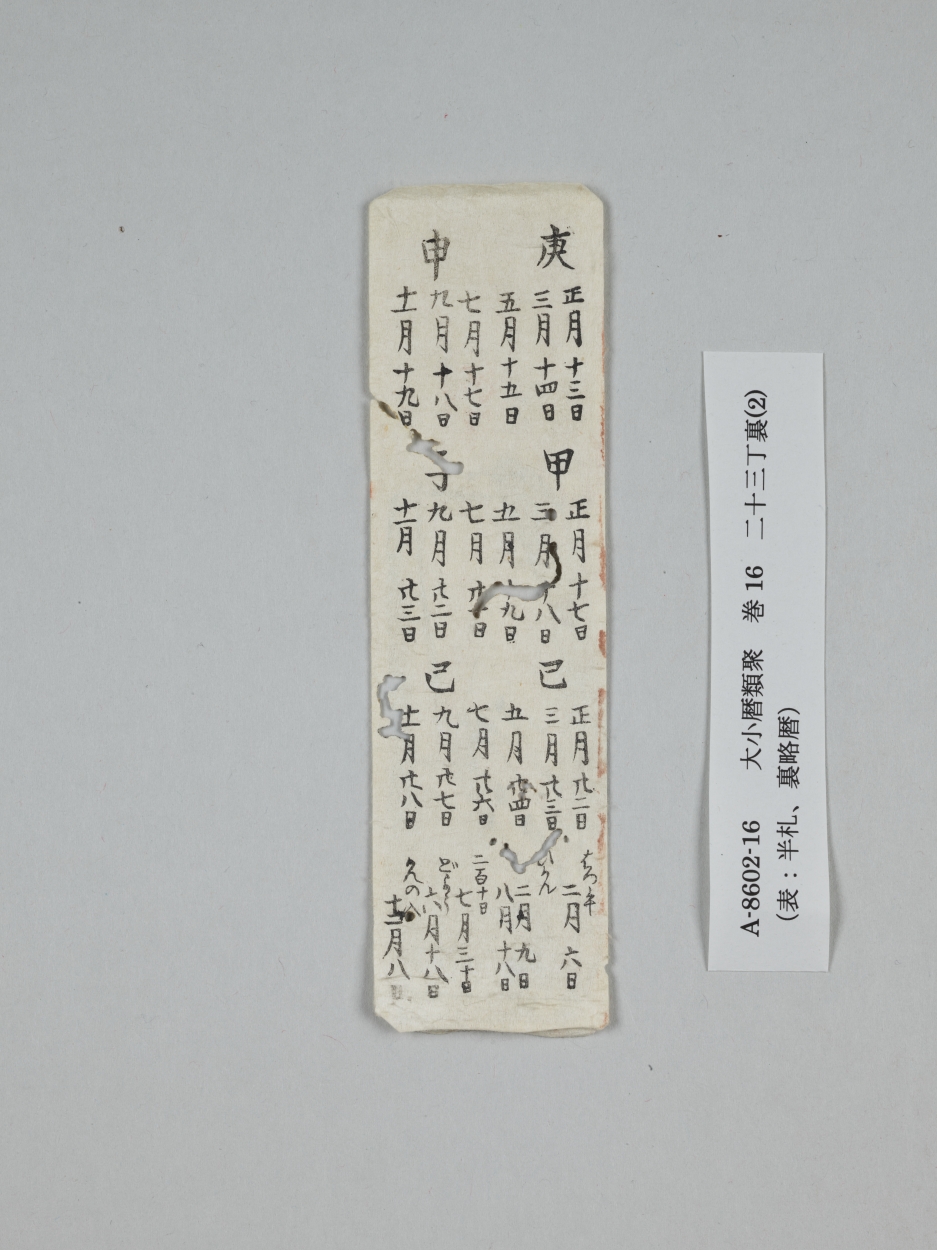 庚申
正月十三日
三月十四日
五月十五日
七月十七日
九月十八日
十一月十九日
甲子
正月十七日
三月十八日
五月十九日
七月廿一日
九月廿二日
十一月廿三日
己巳
正月廿二日
三月廿三日
五月廿四日
七月廿六日
九月廿七日
十一月廿八日
はつ午
二月六日
ひがん
二月九日
八月十八日
二百十日
七月三十日
どよう
六月十八日
かんの入
十二月八日
A-8602-16 大小暦類聚 巻16 二十三丁裏(2)
(表：半札、裏略暦)